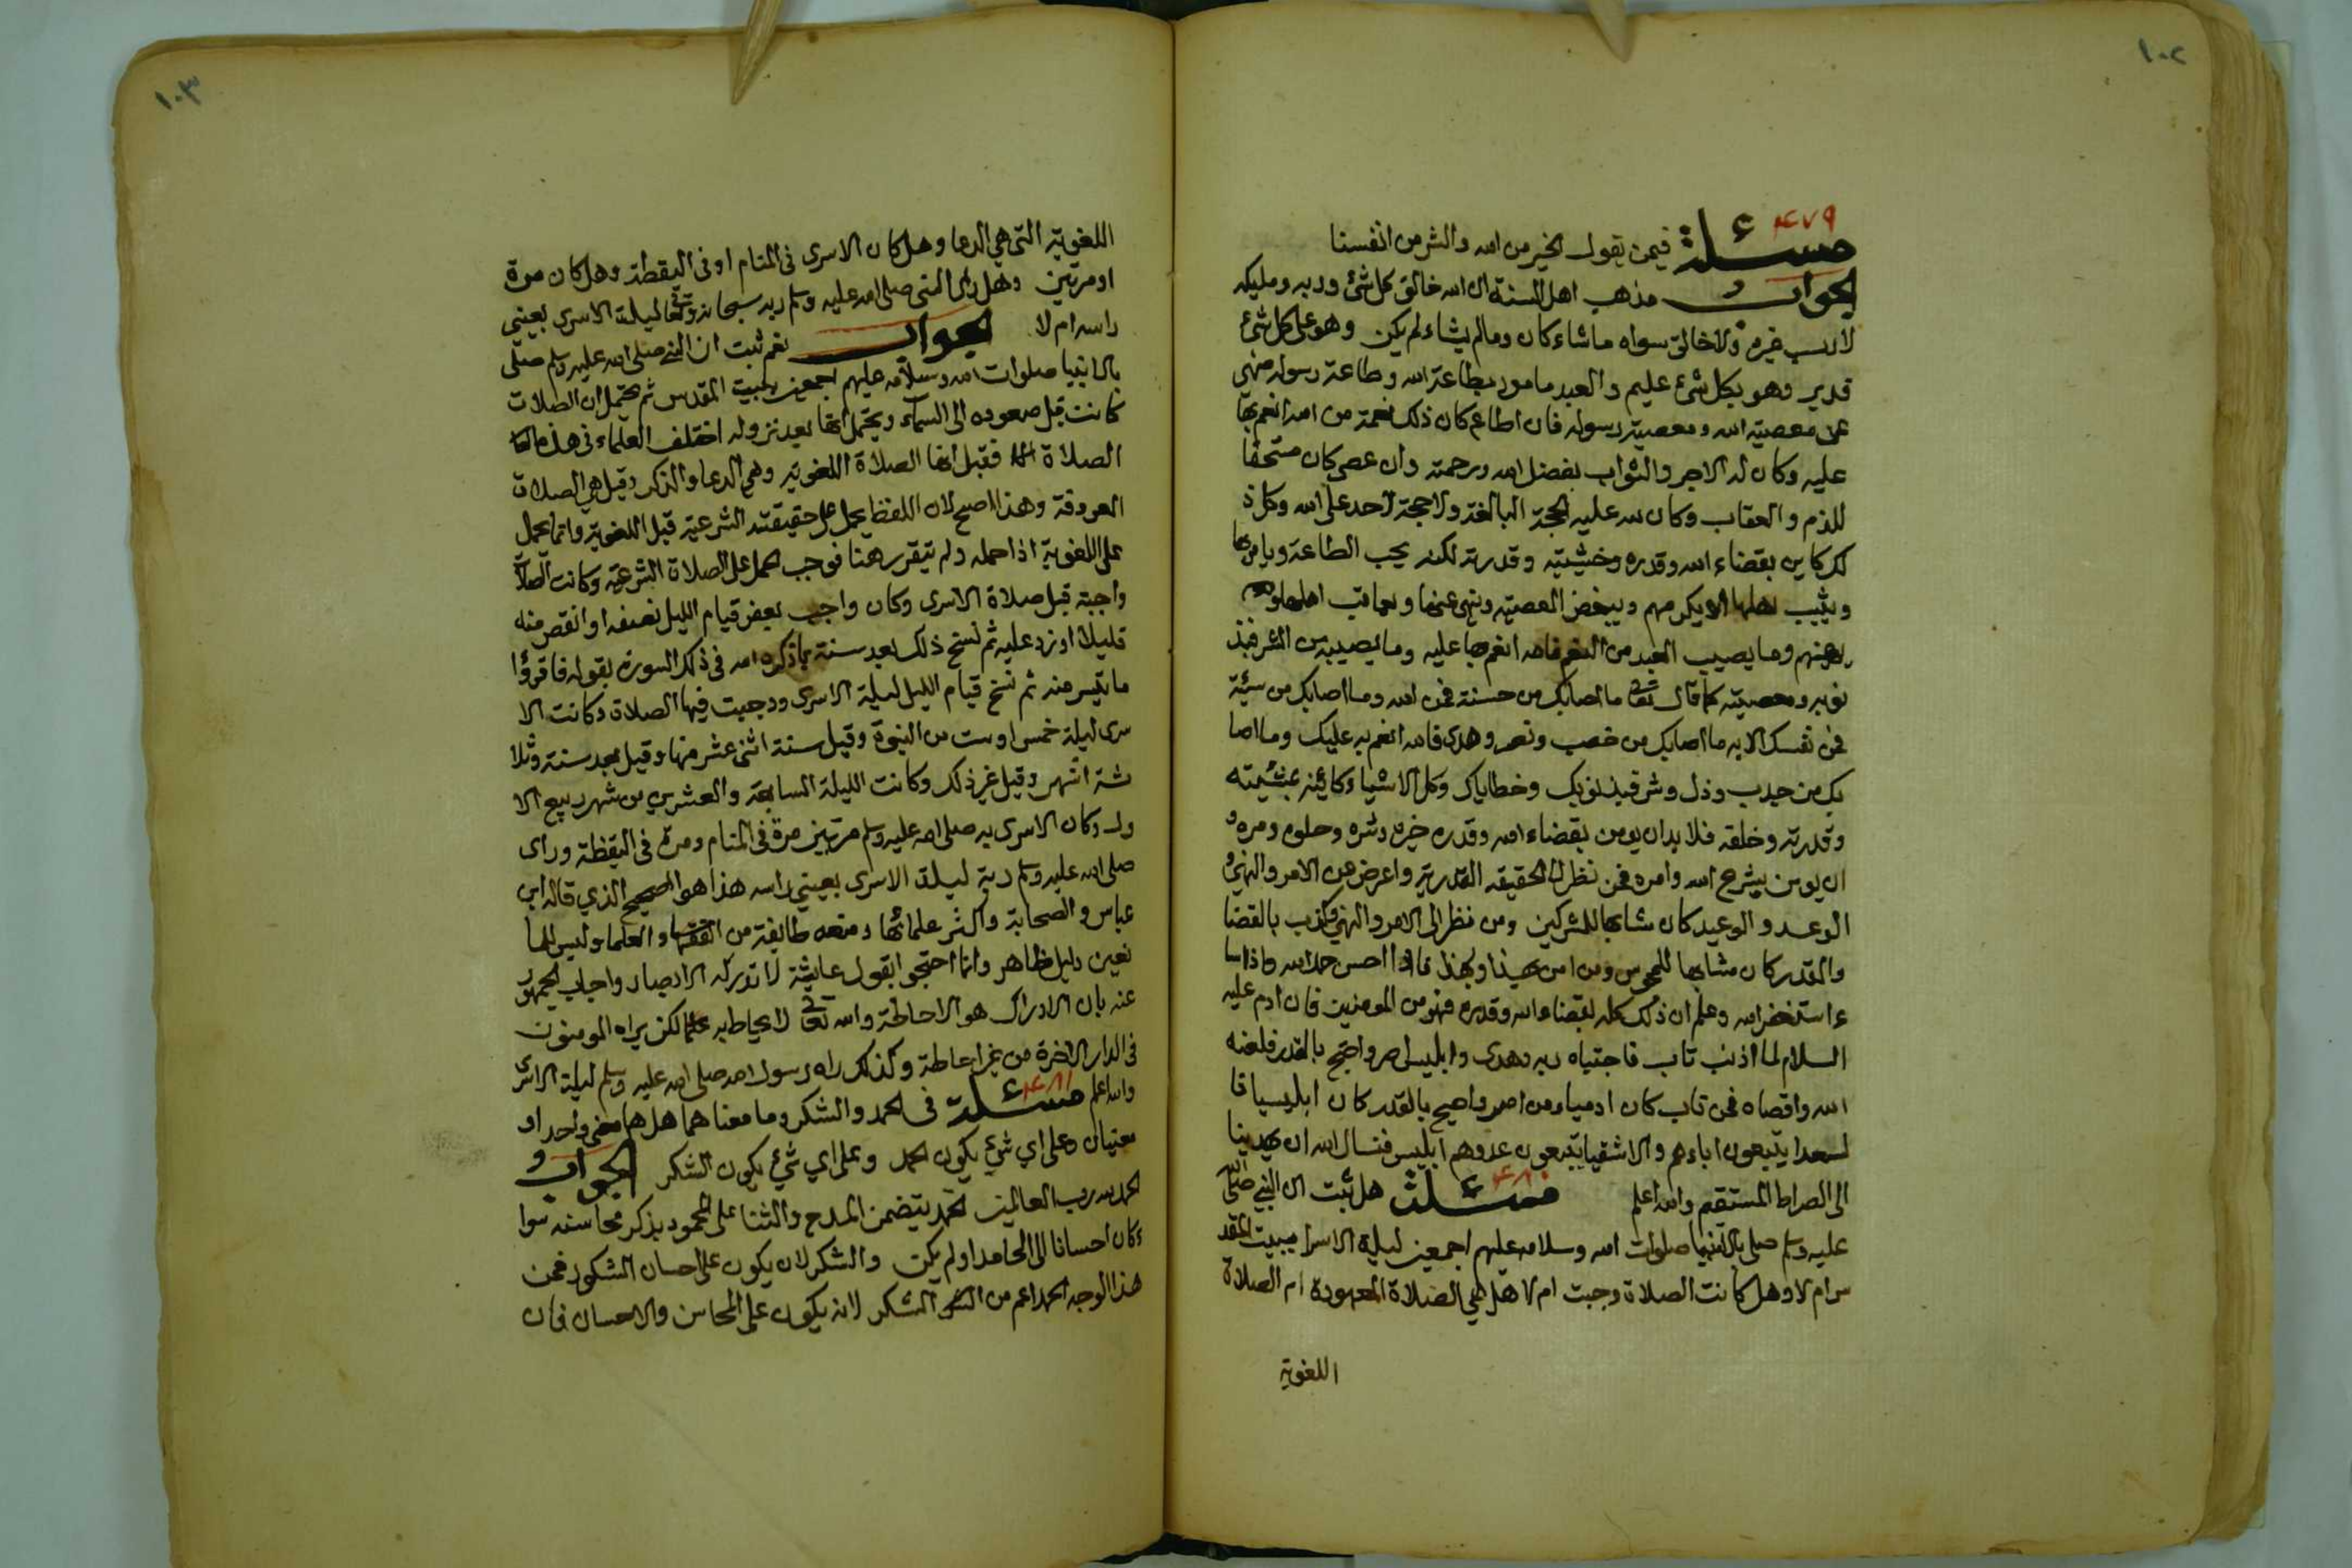 ١٠٢
٤٧٩
مسئلة فيمن يقول الخير من الله والشر من انفسنا
الجواب مذهب اهل السنة ان الله خالق كل شئ وربه ومليكه
لا رب غيره ولا خالق سواه ما شاء كان وما لم يشاء لم يكن وهو على كل شئ
قدير وهو بكل شئ عليم والعبد مامور بطاعة الله وطاعة رسوله منهي
عن معصية الله ومعصية رسوله فان اطاع كان ذلك نعمة من الله انعم بها
عليه وكان له الاجر والثواب بفضل الله ورحمته وان عصى كان مستحقا
للذم والعقاب وكان لله عليه الحجة البالغة ولا حجة لاحد على الله وكل ذ
لك كاين بقضاء الله وقدره ومشيئته وقدرته لكنه يحب الطاعة ويامر بها
ويثيب اهلها يكرمهم ويبغض المعصية وينهى عنها ويعاقب اهلها
ويهينهم وما يصيب العبد من النعم فالله انعم بها عليه وما يصيبه من الشر فبذ
نوبه ومعصيته كما قال تعالى ما اصابك من حسنة فمن الله وما اصابك من سيئة
فمن نفسك الايه ما اصابك من خصب ونصر وهدى فالله انعم به عليك وما اصا
بك من جدب وذل وشر فبذنوبك وخطاياك وكل الاشياء كائينه بمشيئته
وقدرته وخلقه فلا بد ان يومن بقضاء الله وقدره خيره وشره وحلوه ومره و
ان يومن بشرع الله وامره فمن نظر الى الحقيقه القدرية واعرض عن الامر والنهي و
الوعد والوعيد كان مشابها للمشركين ومن نظر الى الامر والنهي وكذب بالقضا
والقدر كان مشابها للمجوس ومن امن بهذا وبهذا فاذا احسن حمد الله واذا اسا
ء استغفر الله وعلم ان ذلك كله بقضاء الله وقدره فهو من المومنين فان ادم عليه
السلام لما اذنب تاب فاجتباه ربه وهدى وابليس اصر واحتج بالقدر فلعنه
الله واقصاه فمن تاب كان ادميا ومن اصر واحتج بالقدر كان ابليسيا فا
لسعدا يتبعون اباءهم والاشقيا يتبعون عدوهم ابليس فنسال الله ان يهدينا
الى الصراط المستقيم والله اعلم ٤٨٠ مسئلة هل ثبت ان النبي صلى الله
عليه وسلم صلى بالانبيا صلوات الله وسلامه عليهم اجمعين ليلة الاسرا ببيت المقد
س ام لا وهل كانت الصلاة وجبت ام لا هل هي الصلاة المعهودة ام الصلاة
اللغوية
١٠٣
اللغوية التى هي الدعا وهل كان الاسرى فى المنام او فى اليقظة وهل كان مرة
او مرتين وهل راى النبى صلى الله عليه وسلم ربه سبحانه وتعالى ليلة الاسرى بعينى
راسه ام لا الجواب نعم ثبت ان النبي صلى الله عليه وسلم صلى
بالانبيا صلوات الله وسلامه عليهم اجمعين ببيت المقدس ثم يحتمل ان الصلات
كانت قبل صعوده الى السماء ويحتمل انها بعد نزوله اختلف العلماء فى هذه
الصلاة فقيل انها الصلاة اللغوية وهي الدعا والذكر وقيل هي الصلاة
المعروفة وهذا اصح لان اللفظ يحمل على حقيقته الشرعية قبل اللغوية وانما يحمل
على اللغوية اذا حمله ولم يتقرر هنا فوجب الحمل على الصلاة الشرعية وكانت الصلاة
واجبة قبل صلاة الاسرى وكان واجب بعض قيام الليل نصفه او انقص منه
قليلا او زد عليه ثم نسخ ذلك بعد سنة بما ذكره الله فى ذلك السورة بقوله فاقرؤا
ما تيسر منه ثم نسخ قيام الليل ليلة الاسرى ووجبت فيها الصلاة وكانت الا
سرى ليلة خمس او ست من النبوة وقيل سنة اثنى عشر منها وقيل بعد سنة وثلا
ثة اشهر وقيل غير ذلك وكانت الليلة السابعة والعشرين من شهر ربيع الا
ول وكان الاسرى به صلى الله عليه وسلم مرتين مرة فى المنام ومرة فى اليقظة وراى
صلى الله عليه وسلم ربه ليلة الاسرى بعيني راسه هذا هو الصحيح الذي قاله ابن
عباس والصحابة واكثر علمائها ومنعه طايفة من الفقها والعلما وليس للما
نعين دليل ظاهر وانما احتجوا بقول عايشة لا تدركه الابصار واجاب الجمهور
عنه بان الادراك هو الاحاطة والله تعالى لا يحاط به علما لكن يراه المومنون
فى الدار الاخرة من غير احاطة وكذلك راه رسول الله صلى الله عليه وسلم ليلة الاسرى
والله اعلم ٤٨١ مسئلة فى الحمد والشكر وما معنا هما هل هما معنى واحد او
معنيان وعلى اي شئ يكون الحمد وعلى اي شئ يكون الشكر الجواب
الحمد لله رب العالمين الحمد يتضمن المدح والثنا على المحمود بذكر محاسنه سوا
ء كان احسانا الى الحامد او لم يكن والشكر لان يكون على احسان المشكور فمن
هذا الوجه الحمد اعم من الشكر لانه يكون على المحاسن والاحسان فان